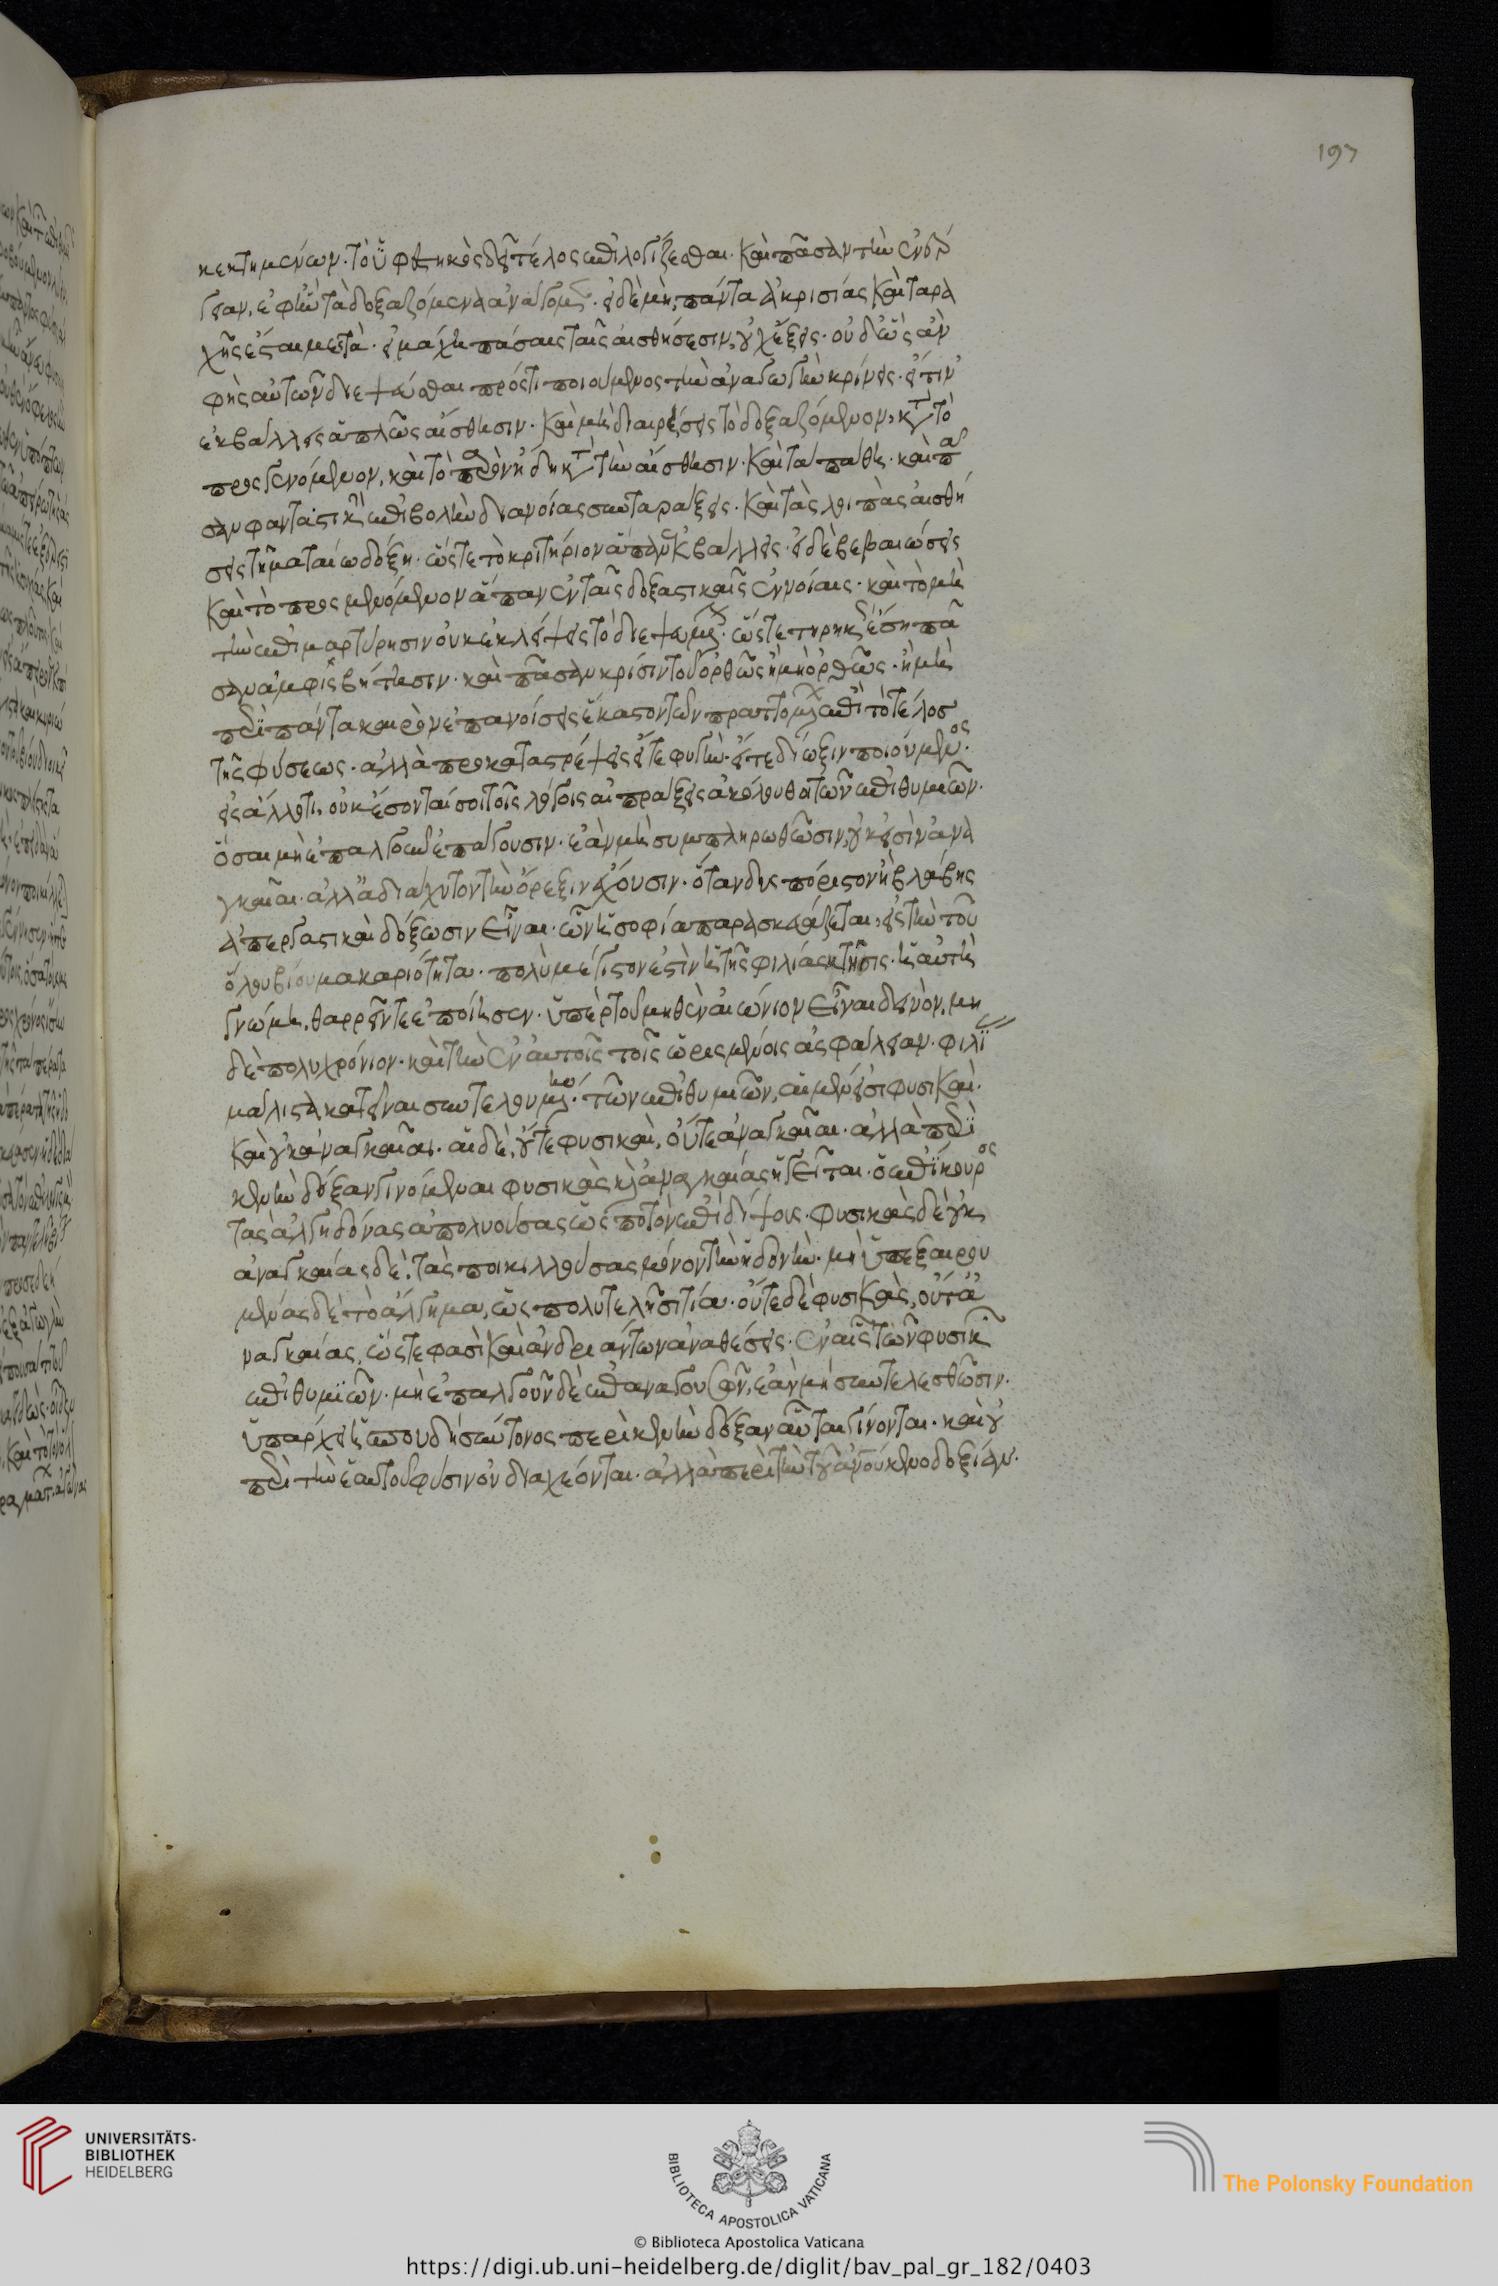 κεκτημένων. τὸ ὑφεστηκὸς δεῖ τέλος ἐπιλογίζεσθαι. καὶ πᾶσαν τὴν ἐνάρ
γειαν, ἐφ' ἣν τὰ δοξαζόμενα ἀνάγομεν. εἰ δὲ μὴ, πάντα ἀκρισίας καὶ ταρα
χῆς ἔσται μεστὰ. εἰ μάχῃ πάσαις ταῖς αἰσθήσεσιν, οὐχ ἕξεις. οὐδ' ὡς ἂν
φὴς αὐτῶν διεψεῦσθαι πρός τι ποιούμενος τὴν ἀναγωγὴν κρίνεις. εἴ τιν'
ἐκβάλλεις ἁπλῶς αἴσθησιν. καὶ μὴ διαιρέσεις τὸ δοξαζόμενον, κατὰ τὸ
προσγενόμενον, καὶ τὸ παρὸν ἤδη κατὰ τὴν αἴσθησιν. καὶ τὰ πάθη. καὶ πᾶ
σαν φανταστικὴν ἐπιβολὴν διανοίας συνταράξεις. καὶ τὰς λοιπὰς αἰσθή
σεις τῇ ματαίω δόξη. ὥστε τὸ κριτήριον ἅπαν ἐκβάλλεις. εἰ δὲ βεβαιώσεις
καὶ τὸ προσμενόμενον ἅπαν ἐν ταῖς δοξαστικαῖς ἐννοίαις. καὶ τὸ μὴ
τὴν ἐπιμαρτύρησιν οὐκ ἐκλείψεις τὸ διεψευσμένον. ὥστε τηρηκὼς ἔση πᾶ
σαν ἀμφισβήτησιν. καὶ πᾶσαν κρίσιν τοῦ ὀρθῶς ἢ μὴ ὀρθῶς. ἢ μὴ
παρὰ πάντα καιρὸν ἐπανοίσεις ἕκαστον τῶν πραττομένων ἐπὶ τὸ τέλος
τῆς φύσεως. ἀλλὰ προκαταστρέψεις εἴτε φυγὴν. εἴτε δίωξιν ποιούμενος
εἰς ἄλλο τι, οὐκ ἔσονταί σοι τοῖς λόγοις αἱ πράξεις ἀκόλουθα τῶν ἐπιθυμιῶν.
ὅσαι μὴ ἐπ' ἀλγοῦν ἐπάγουσιν. ἐὰν μὴ συμπληρωθῶσιν, οὐκ εἰσὶν ἀνα
γκαῖαι. ἀλλ' ἀδιάχυτον τὴν ὄρεξιν ἔχουσιν. ὅταν δυσπόριστον ἢ βλάβης
ἀπεργαστικαὶ δόξωσιν εἶναι. ὧν ἡ σοφία παρασκευάζεται, εἰς τὴν τοῦ
ὅλου βίου μακαριότητα. πολὺ μέγιστον ἐστὶν ἡ τῆς φιλίας κτῆσις. ἡ αὐτὴ
γνώμη, θαρρεῖν τε ἐποίησεν. ὑπὲρ τοῦ μηθὲν αἰώνιον εἶναι δεινὸν, μη
δὲ πολυχρόνιον. καὶ τὴν ἐν αὐτοῖς τοῖς ὡρισμένοις ἀσφάλειαν. φιλί
μάλιστα κατεῖναι συντελουμένη. τῶν ἐπιθυμιῶν, αἱ μέν εἰσι φυσικαὶ.
καὶ οὐκ ἀναγκαῖαι. αἱ δὲ, οὔτε φυσικαὶ, οὔτε ἀναγκαῖαι. ἀλλὰ παρὰ
κενὴν δόξαν γινόμεναι φυσικὰς καὶ ἀναγκαίας ἡγεῖται. ὁ ἐπίκουρος
τὰς ἀλγηδόνας ἀπολυούσας ὡς ποτὸν ἐπὶ δίψους. φυσικὰς δὲ οὐκ
ἀναγκαίας δὲ, τὰς ποικιλλούσας μόνον τὴν ἡδονὴν. μὴ ὑπεξαιρου
μένας δὲ τὸ ἄλγημα, ὡς πολυτελῆ σιτία. οὔτε δὲ φυσικὰς, οὔτ' ἀ
ναγκαίας, ὥς τε φασὶ καὶ ἀνδριάντων ἀναθέσεις. ἐν αἷς τῶν φυσικῶν
ἐπιθυμιῶν. μὴ ἐπ' ἀλγοῦν δὲ ἐπαναγουσῶν, ἐὰν μὴ συντελεσθῶσιν.
ὑπάρχει ἡ σπουδὴ σύντονος περὶ κενὴν δόξαν αὗται γίνονται. καὶ οὐ
παρὰ τὴν ἑαυτοῦ φύσιν οὐ διαχέονται. ἀλλὰ περὶ τὴν τοῦ ἀνθρώπου κενοδοξίαν.
197
UNIVERSITÄTS-
BIBLIOTHEK
HEIDELBERG
BIBLIOTECA APOSTOLICA VATICANA
The Polonsky Foundation
© Biblioteca Apostolica Vaticana
https://digi.ub.uni-heidelberg.de/diglit/bav_pal_gr_182/0403